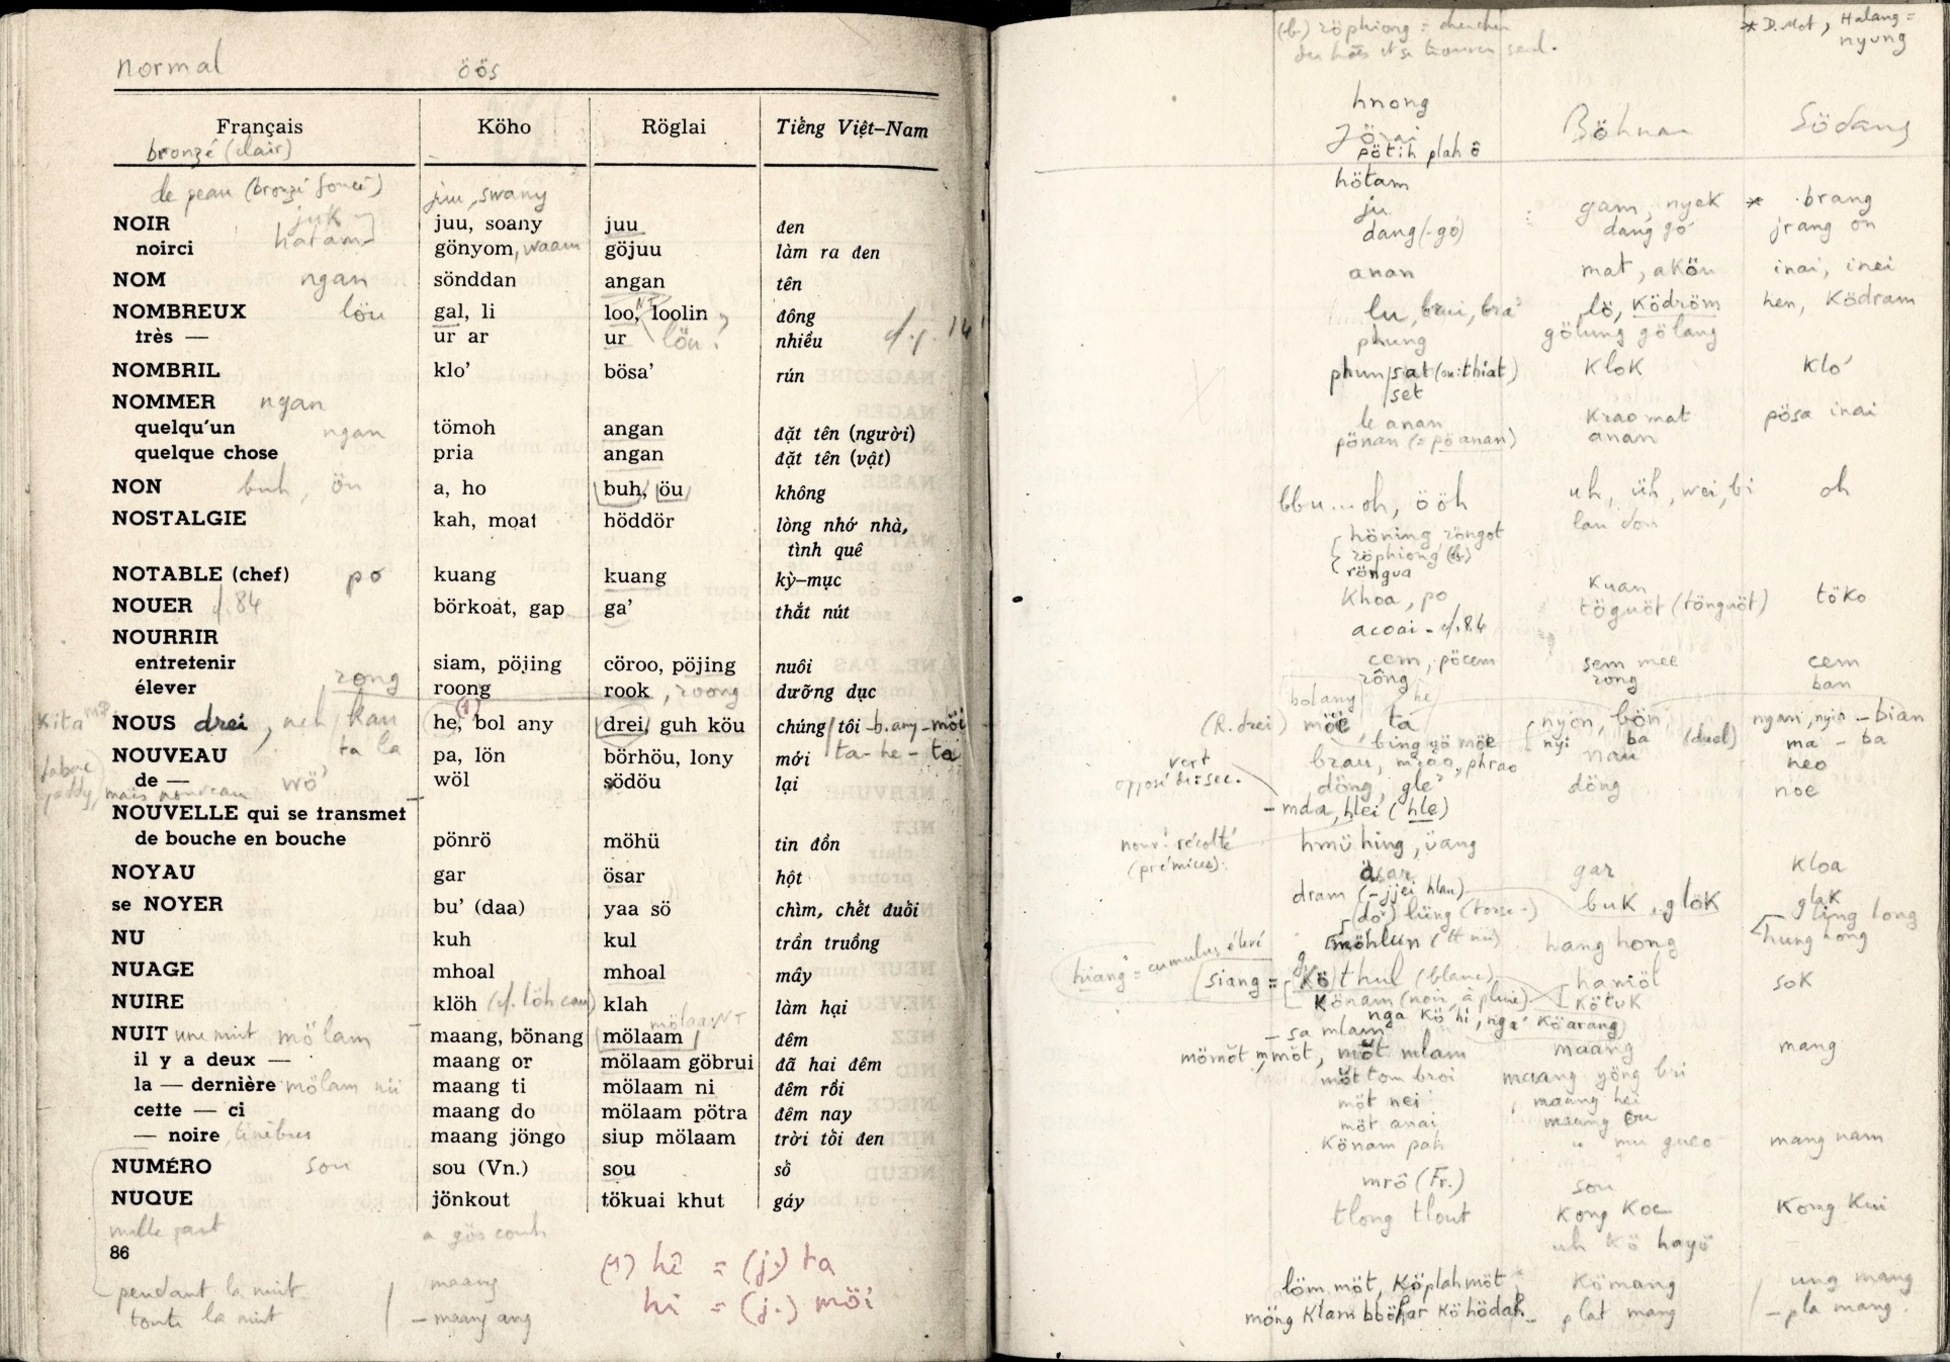 normal öös
Français Köho Röglai Tiếng Việt–Nam
bronzé (clair)
de peau (bronzé foncé) juu, swany
juk
NOIR juu, soany juu đen
noirci hatam gönyom, waam göjuu làm ra đen
NOM ngan sönddan angan tên
NOMBREUX löu gal, li loo, loolin đông
très — ur ar ur löu nhiều
NOMBRIL klo’ bösa’ rún
NOMMER ngan
quelqu’un ngan tömoh angan đặt tên (người)
quelque chose pria angan đặt tên (vật)
NON buh, öu a, ho buh, öu không
NOSTALGIE kah, moat höddör lòng nhớ nhà,
tình quê
NOTABLE (chef) po kuang kuang kỳ–mục
NOUER cf. 84 börkoat, gap ga’ thắt nút
NOURRIR
entretenir siam, pöjing cöroo, pöjing nuôi
élever rong roong rook, roong dưỡng dục
kita NOUS drei, kau he, (1) bol any drei, guh köu chúng tôi b. any – möi
ta la ta – he – ta
NOUVEAU pa, lön börhöu, lony mới
de — wö’ wöl södöu lại
paddy, maïs nouveau
NOUVELLE qui se transmet
de bouche en bouche pönrö möhü tin đồn
NOYAU gar ösar hột
se NOYER bu’ (daa) yaa sö chìm, chết đuối
NU kuh kul trần truồng
NUAGE mhoal mhoal mây
NUIRE klöh klah làm hại
NUIT une nuit mölam maang, bönang mölaam đêm
il y a deux — maang or mölaam göbrui đã hai đêm
la — dernière mölam maang ti mölaam ni đêm rồi
cette — ci maang do mölaam pötra đêm nay
— noire, ténèbres maang jöngo siup mölaam trời tối đen
NUMÉRO sou sou (Vn.) sou số
NUQUE jönkout tökuai khut gáy
nulle part
86
(1) he = (j.) ta
hi = (j.) möi
pendant la nuit maang
toute la nuit – maang ang
(b) röphiong = chercher
* D. Mot, Halang =
nyung
hnong
Jörai Böhnar Södang
pötih plah ô
hötam
ju gam, nyek * brang
dang (-gö) dang gö jrang on
anan mat, aköu inai, inei
lu, brui, bra’ lö, ködröm hen, Ködram
phung gölung gölang
phun sat (ou: thiat) Klok klo’
set
le anan Krao mat pösa inai
pönan (= pö anan) anan
bbu... oh, ööh uh, üh, wei, bi oh
lau don
höning, röngot
röphiong (b)
röngua
Khoa, po kuan
töguöt (tönguöt) töko
acoai – cf. 84
cem, pöcem sem mee cem
rông rong ban
bol any he
(R. drei) möi ta nyön, bön
bing gö möe nyi ba (duel) ma – ba
brau, mrao, phrao nau neo
vert
opposé de: sec. döng, gle’ döng noe
– mda, hlei (hle)
nouv. récolté hmü hing, üang
(prémices)
asar gar kloa
dram (– jjei hlau) buk, glök glak
lüng (torse –) ling long
möhlun hang hong hung hong
hiang = cumulus
siang = Kö thul (blanc) hamöl sok
Könam (noir, à pluie) Kötuk
nga Kö hi, nga Köarang
– sa mlam
mömöt, mmöt, möt mlam maang mang
möt tom broi maang yöng bri
möt nei maang hei
möt anai maang öu
Könam pah mang nam
mrô (Fr.) sou
tlong tlout Kong Koe Kong Kui
uh kö hayö
löm möt, Köplah möt Kömang ung mang
möng Klam bböhar Kö hödah plat mang – pla mang